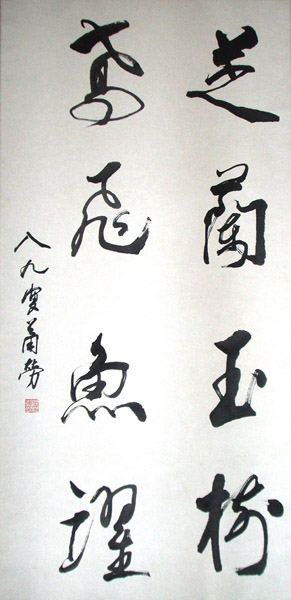 芝蘭玉樹
鳶飛魚躍
八九叟蕭勞